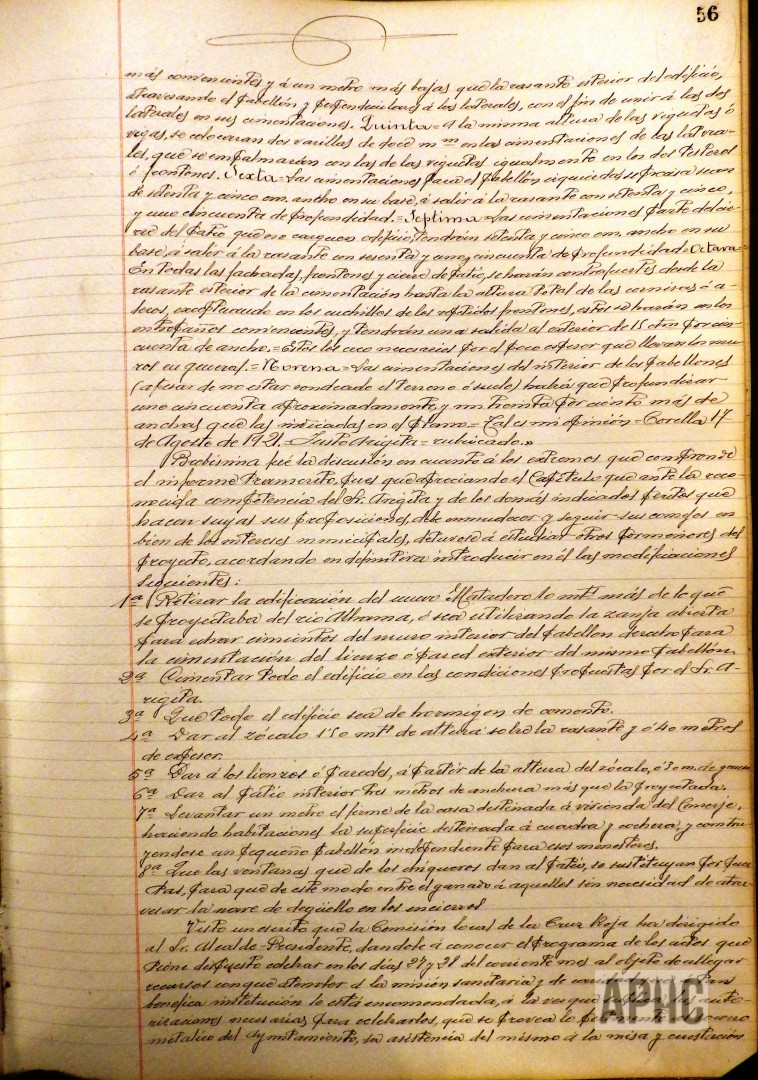 56
más convenientes y á un metro más bajas que la rasante exterior del edificio,
atravesando el pabellón y perpendiculares á los laterales, con el fin de unir á las dos
laterales en sus cimentaciones. Quinta = A la misma altura de las viguetas ó
vigas, se colocaran dos varillas de doce m/m en las cimentaciones de las latera-
les, que se empalmarán con las de las viguetas igualmente en los dos testeros
ó frontones. Sexta = Las cimentaciones para el pabellón izquierdo se precisa sean
de setenta y cinco cm. ancho en su base, á salir á la rasante con setenta y cinco,
y uno cincuenta de profundidad. = Septima = Las cimentaciones parte del cie-
rre del patio que no cargue edificio, tendrán setenta y cinco cm. ancho en su
base, á salir á la rasante con sesenta y uno cincuenta de profundidad = Octava =
En todas las fachadas, frontones y cierre de patio, se harán contrafuertes desde la
rasante exterior de la cimentación hasta la altura total de las cornisas ó a-
leros, exceptuando en los cuchillos de los repetidos frontones, estos se harán en los
entrepaños convenientes, y tendrán una salida al exterior de 15 ctm por cin-
cuenta de ancho. = Estos los creo necesarios por el poco espesor que llevan los mu-
ros en general. = Novena = Las cimentaciones del interior de los pabellones
(apesar de no estar sondeado el terreno ó suelo) habrá que profundizar
uno cincuenta aproximadamente, y un treinta por ciento más de
anchas que las indicadas en el plano = Tal es mi opinión = Corella 17
de Agosto de 1921. = Justo Arigita = rubricado.»
fué la discusión en cuanto á los extremos que comprende
el informe transcrito, pues que apreciando el Capítulo que ante la reco-
nocida competencia del Sr. Arigita y de los demás indicados peritos que
hacen suyas sus proposiciones, debe enmudecer y seguir sus consejos en
bien de los intereses municipales, detúvose á estudiar otros pormenores del
proyecto, acordando en definitiva introducir en él las modificaciones
siguientes:
1ª Retirar la edificación del nuevo Matadero 10 mts más de lo que
se proyectaba del río Alhama, ó sea utilizando la zanja abierta
para cimientos del muro interior del pabellon derecho para
la cimentación del lienzo ó pared exterior del mismo pabellón.
2ª Cimentar todo el edificio en las condiciones propuestas por el Sr. A-
rigita.
3ª Que todo el edificio sea de hormigon de cemento.
4ª Dar al zócalo 1'50 mts de altura sobre la rasante y 0'40 metros
de espesor.
5ª Dar á los lienzos ó paredes, á partir de la altura del zócalo, 0'30 m. de grueso
6ª Dar al patio interior tres metros de anchura más que la proyectada.
7ª Levantar un metro el firme de la casa destinada á vivienda del Conserje,
haciendo habitaciones la superficie destinada á cuadra y cochera, y constru-
yendose un pequeño pabellón independiente para esos menesteres.
8ª Que las ventanas que de los chiqueros dan al patio, se sustituyan por puer-
tas, para que de este modo entre el ganado á aquellos sin necesidad de atra-
vesar la nave de degüello en los encierros
Visto un escrito que la Comisión local de la Cruz Roja ha dirigido
al Sr. Alcalde-Presidente, dandole á conocer el programa de los actos que
tiene dispuesto celebrar en los días 27 y 28 del corriente mes al objeto de allegar
recursos con que atender á la misión sanitaria y de que
benéfica institución le está encomendada, á la vez que las auto-
rizaciones necesarias para celebrarlos, que se provea lo
metálico del Ayuntamiento, su asistencia del mismo á la misa y cuestación
APHC